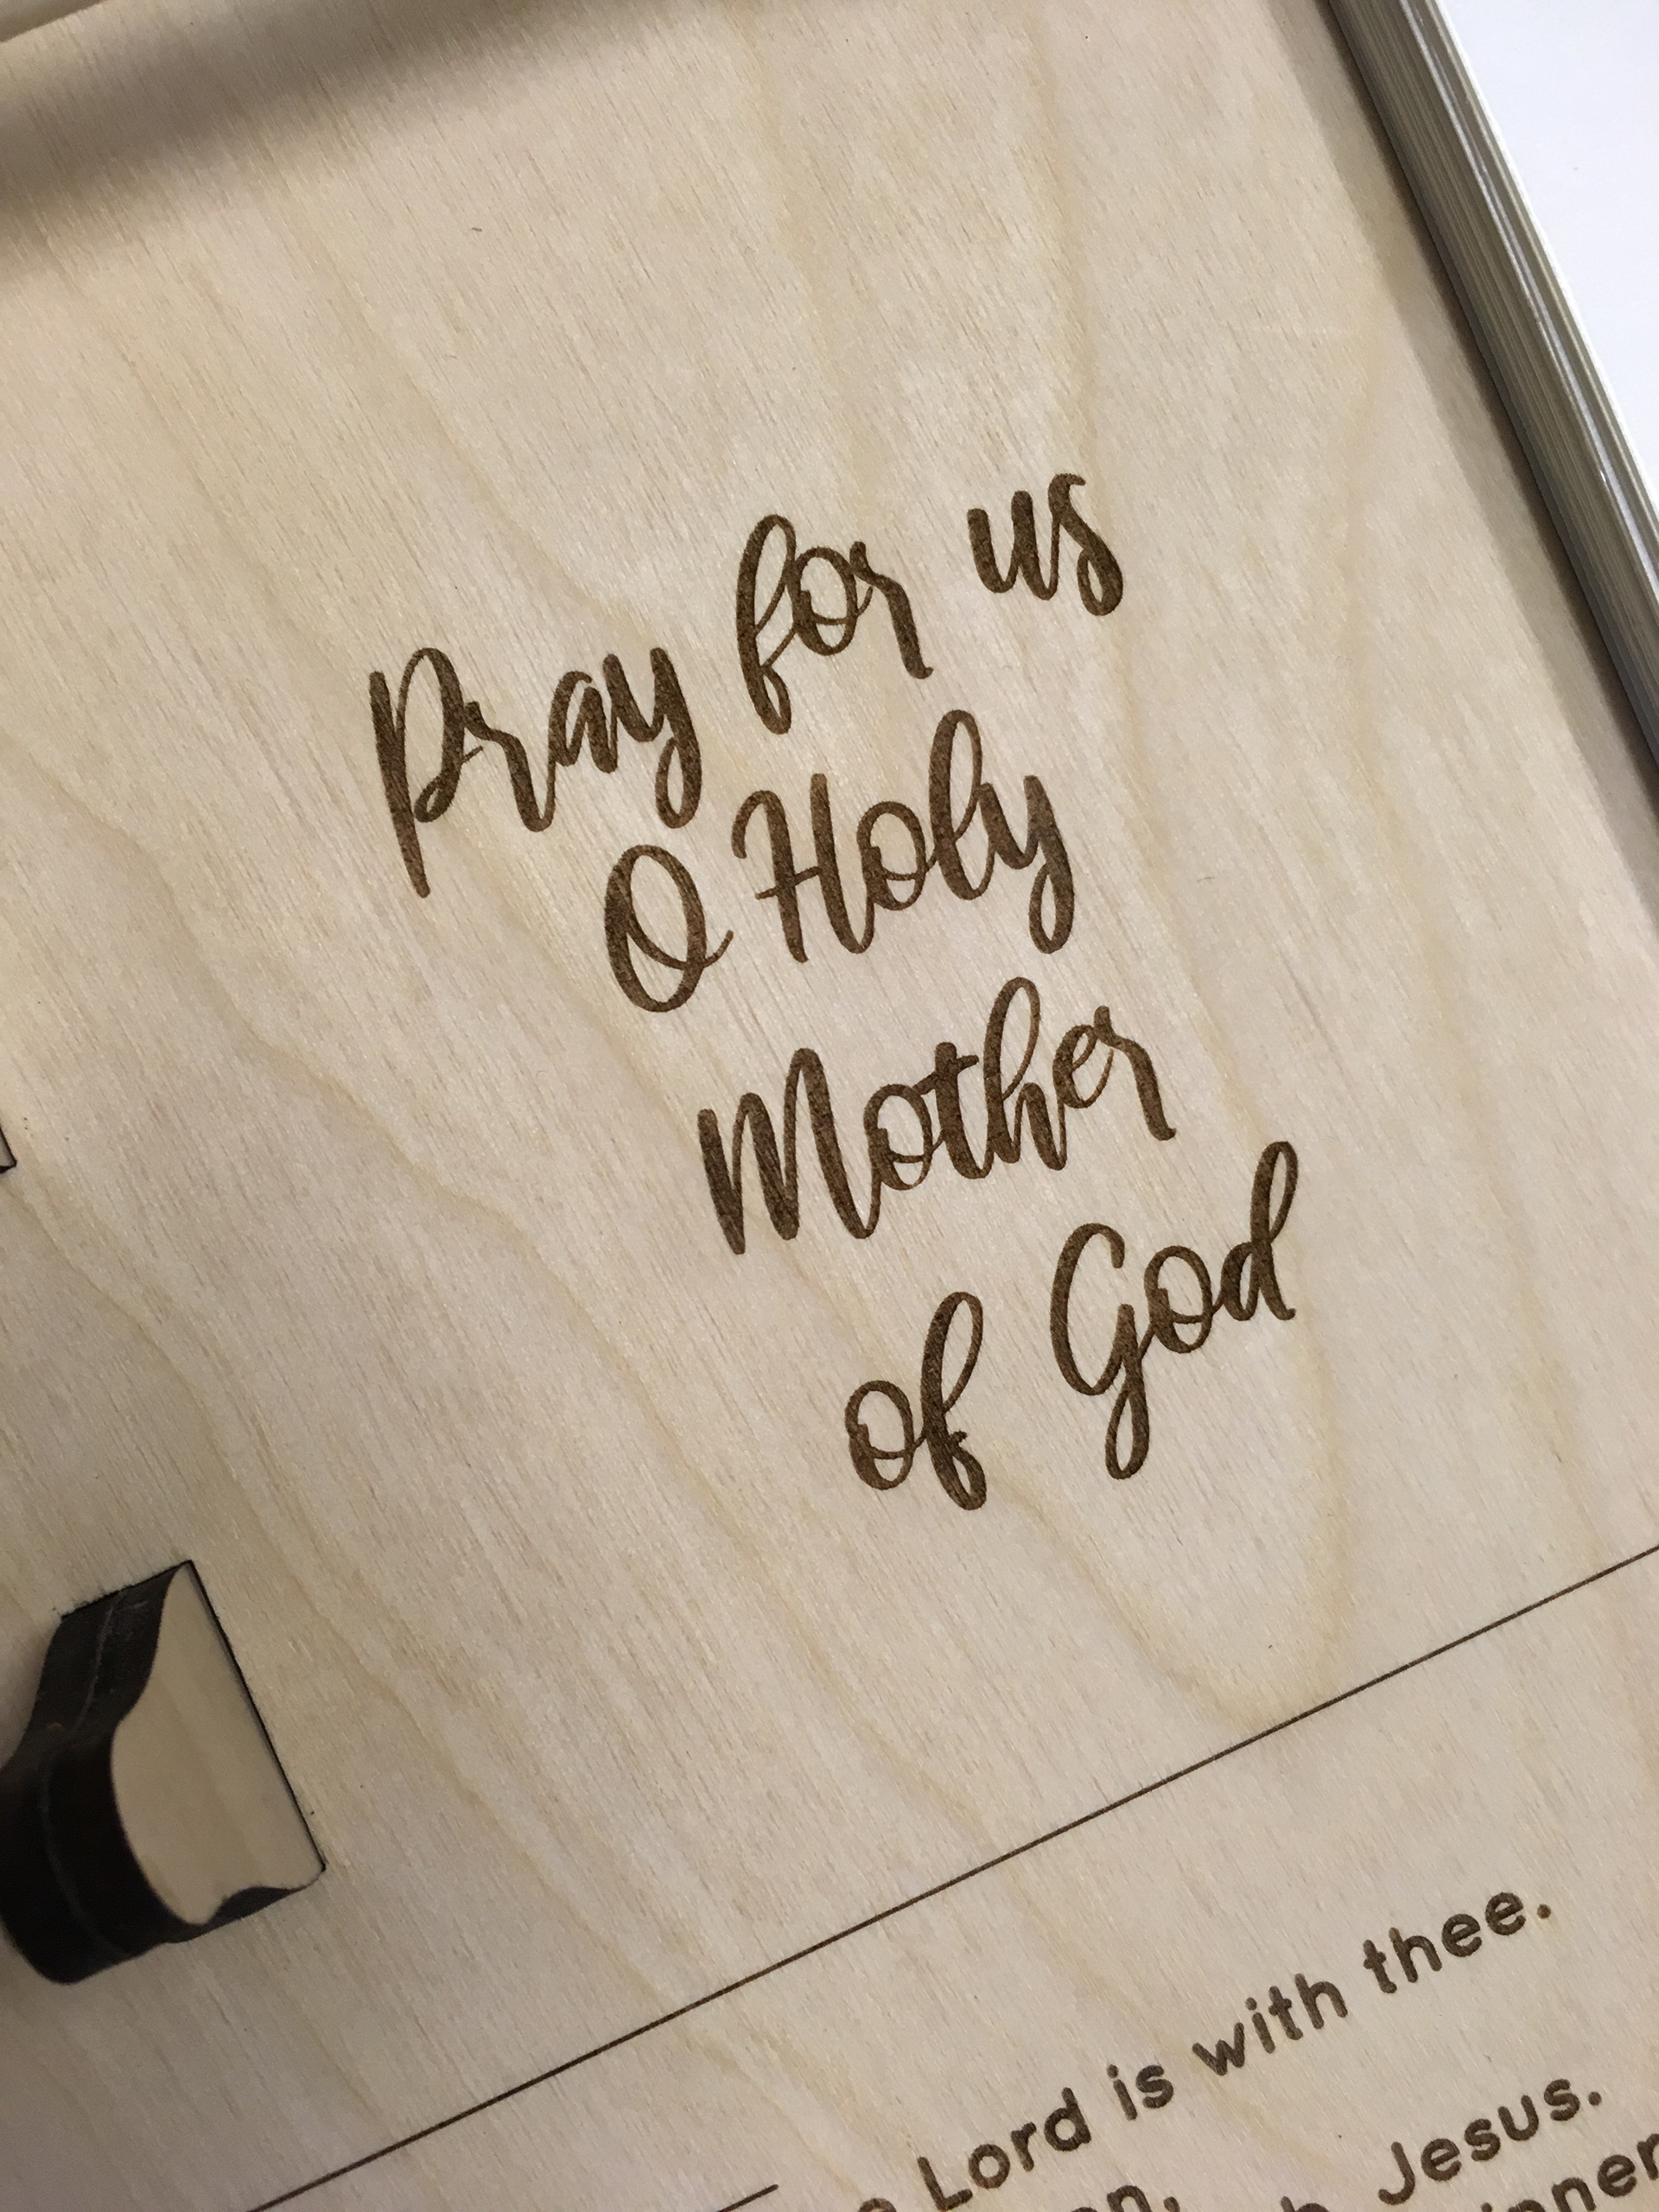 Pray for us
O Holy
Mother
of God
Lord is with thee.
Jesus.